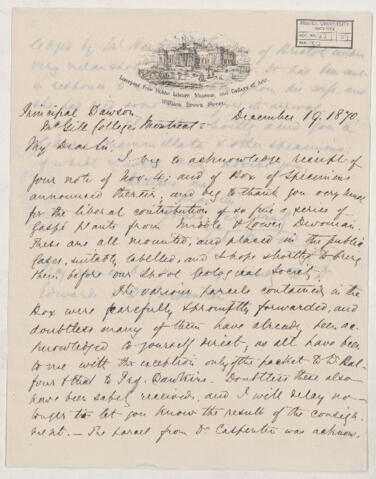 Liverpool Free Public Library, Museum, and Gallery of Art,
William Brown Street.
December 19. 1870
Principal Dawson
McGill College, Montreal.
My dear Sir,
I beg to acknowledge receipt of
your note of Nov. 4, and of Box of Specimens
announced therein, and beg to thank you very much
for the liberal contribution of so fine a series of
Gaspé plants from Middle & Lower Devonian.
These are all mounted, and placed in the public
Cases, suitably labelled, and I hope shortly to bring
them before our Local Geological Society.
The various parcels contained in the
Box were carefully & promptly forwarded, and
doubtless many of them have already been ac-
knowledged to yourself direct, as all have been
to me with the exception only of the packet to Dr Bal-
four & that to Prof. Dawkins. Doubtless these also
have been safely received, and I will delay no
longer to let you know the result of the consign-
ment. — The parcel from Dr Carpenter was acknow-